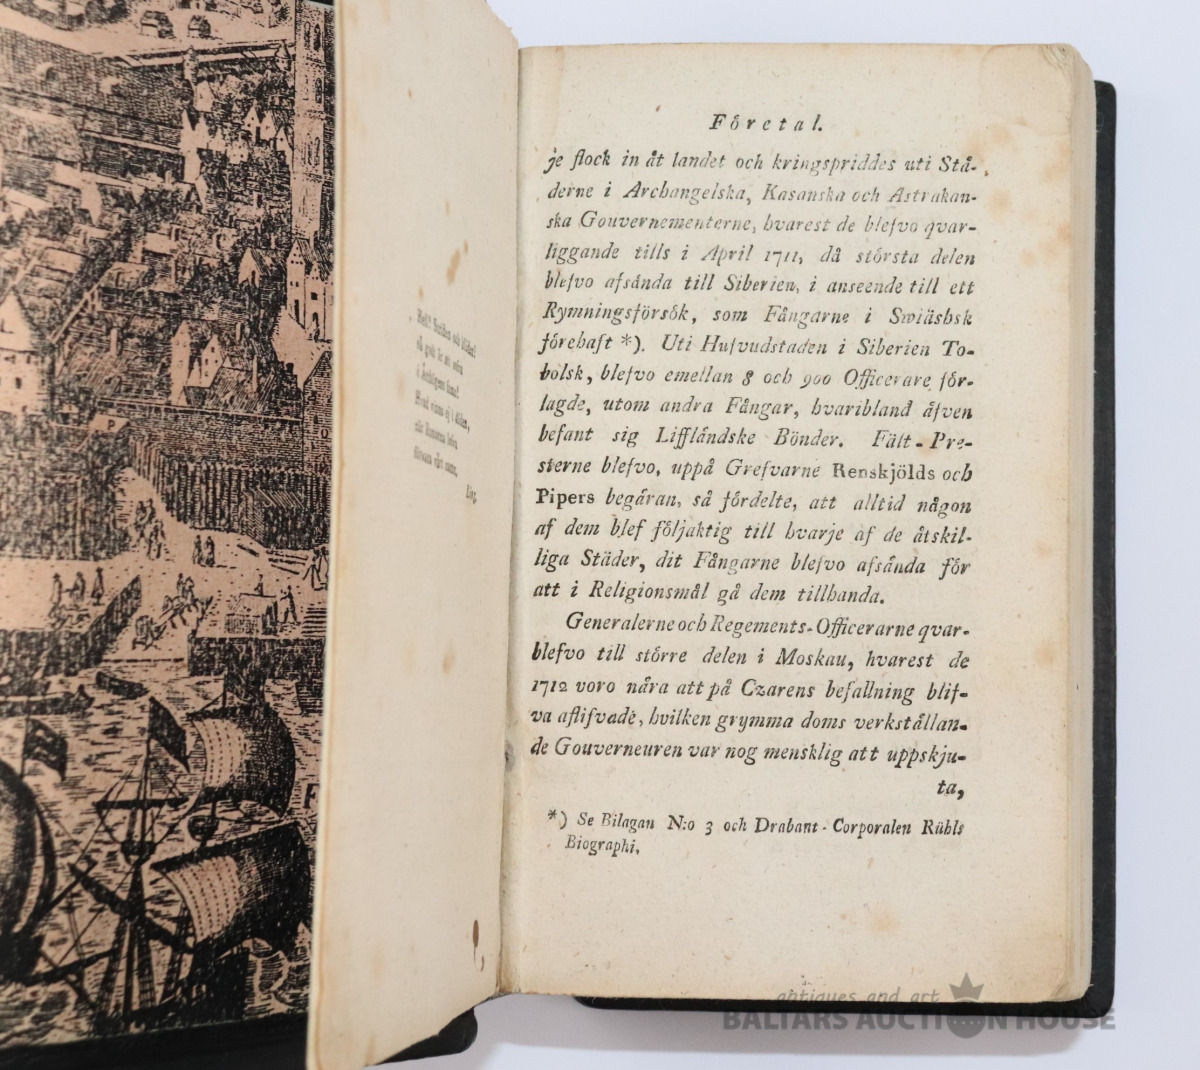 Hell! Seklen och bildar!
då godt är att sofva
i ärkling
Hvad vinna ej i döden,
när
försom vårt samt.
Ling.
Företal.
je flock in åt landet och kringspriddes uti Stä-
derne i Archangelska, Kasanska och Astrakan-
ska Gouvernementerne, hvarest de blefvo qvar-
liggande tills i April 1711, då största delen
blefvo afsända till Siberien, i anseende till ett
Rymningsförsök, som Fångarne i Swiäshsk
förehaft *). Uti Hufvudstaden i Siberien To-
bolsk, blefvo emellan 8 och 900 Officerare för-
lagde, utom andra Fångar, hvaribland äfven
befant sig Liffländske Bönder. Fält-Pre-
sterne blefvo, uppå Grefvarne Renskjölds och
Pipers begäran, så fördelte, att alltid någon
af dem blef följaktig till hvarje af de åtskil-
liga Städer, dit Fångarne blefvo afsända för
att i Religionsmål gå dem tillhanda.
Generalerne och Regements-Officerarne qvar-
blefvo till större delen i Moskau, hvarest de
1712 voro nära att på Czarens befallning blif-
va aflifvade, hvilken grymma doms verkställan-
de Gouverneuren var nog mensklig att uppskju-
ta,
*) Se Bilagan N:o 3 och Drabant-Corporalen Rühls
Biographi,
antiques and art
BALTARS AUCTION HOUSE